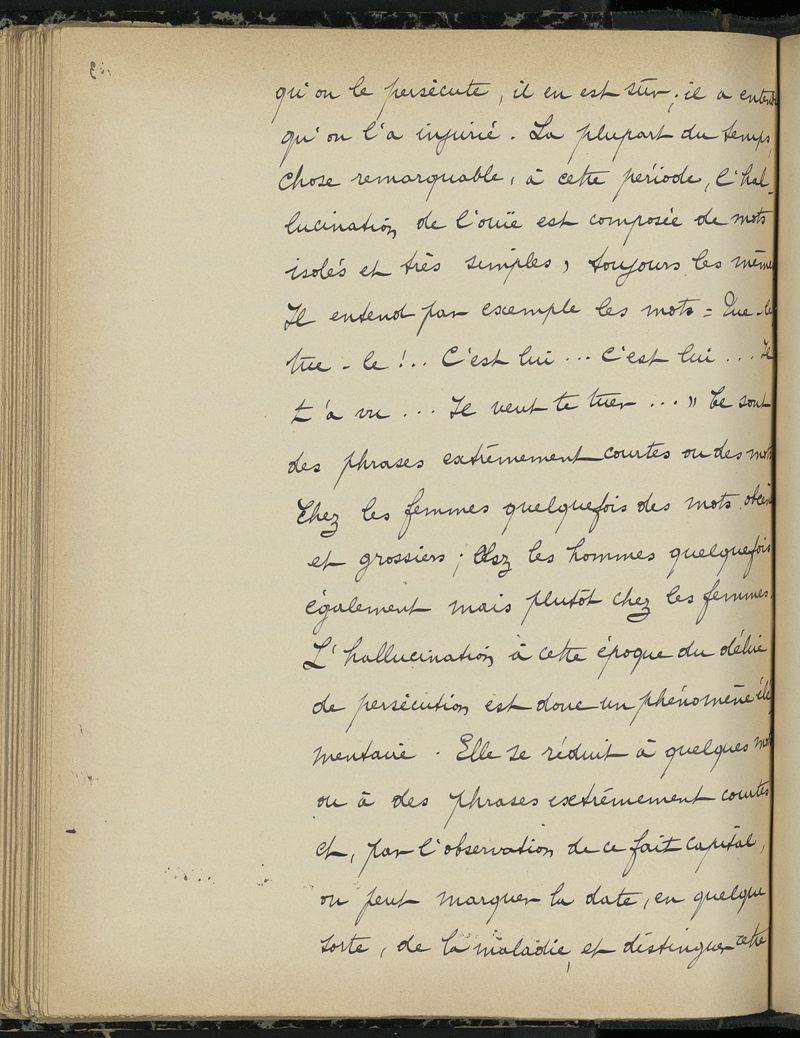 qu'on le persécute, il en est sûr; il a entendu
qu'on l'a injurié. La plupart du temps,
chose remarquable, à cette période, l'hal-
lucination de l'ouïe est composée de mots
isolés et très simples, toujours les mêmes
Il entend par exemple les mots = Tue-le,
tue-le!.. C'est lui... C'est lui... Il
t'a vu... Il veut te tuer..." Ce sont
des phrases extrêmement courtes ou des mots
Chez les femmes quelquefois des mots obcènes
et grossiers; chez les hommes quelquefois
également mais plutôt chez les femmes.
L'hallucination à cette époque du délire
de persécution est donc un phénomène élé-
mentaire. Elle se réduit à quelques mots
ou à des phrases extrémement courtes
et, par l'observation de ce fait capital,
on peut marquer la date, en quelque
sorte, de la maladie, et distinguer cette